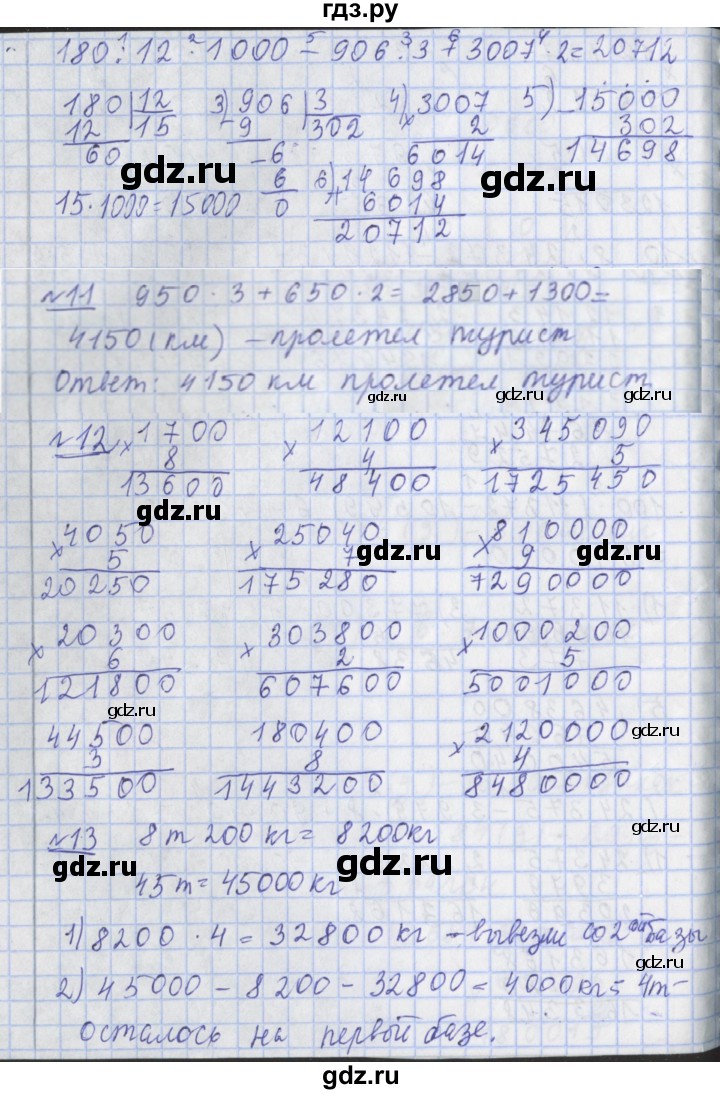 гдз.ру
180 : 12 · 1000 − 906 : 3 + 3007 · 2 = 20712
180 | 12 3) 906 | 3 4) 3007 5) 15000
12 15 9 302 × 2 − 302
60 6 6014 14698
gdz.ru gdz.ru
15 · 1000 = 15000 6 6) 14698
0 + 6014
20712
№11 950 · 3 + 650 · 2 = 2850 + 1300 =
4150 (км) – пролетел турист
Ответ: 4150 км пролетел турист
gdz.ru gdz.ru
№12 × 1700 × 12100 × 345090
8 4 5
13600 48400 1725450
gdz.ru
× 4050 × 25040 × 810000
5 7 9
20250 175280 7290000
gdz.ru gdz.ru
× 20300 × 303800 × 1000200
6 2 5
121800 607600 5001000
gdz.ru
44500 180400 × 2120000
3 8 4
133500 1443200 8480000
gdz.ru
№13 8 т 200 кг = 8200 кг
gdz.ru
45 т = 45000 кг
gdz.ru gdz.ru
1) 8200 · 4 = 32800 кг – вывезли со 2ой базы
gdz.ru
2) 45000 − 8200 − 32800 = 4000 кг = 4 т –
осталось на первой базе.
gdz.ru gdz.ru
gdz.ru